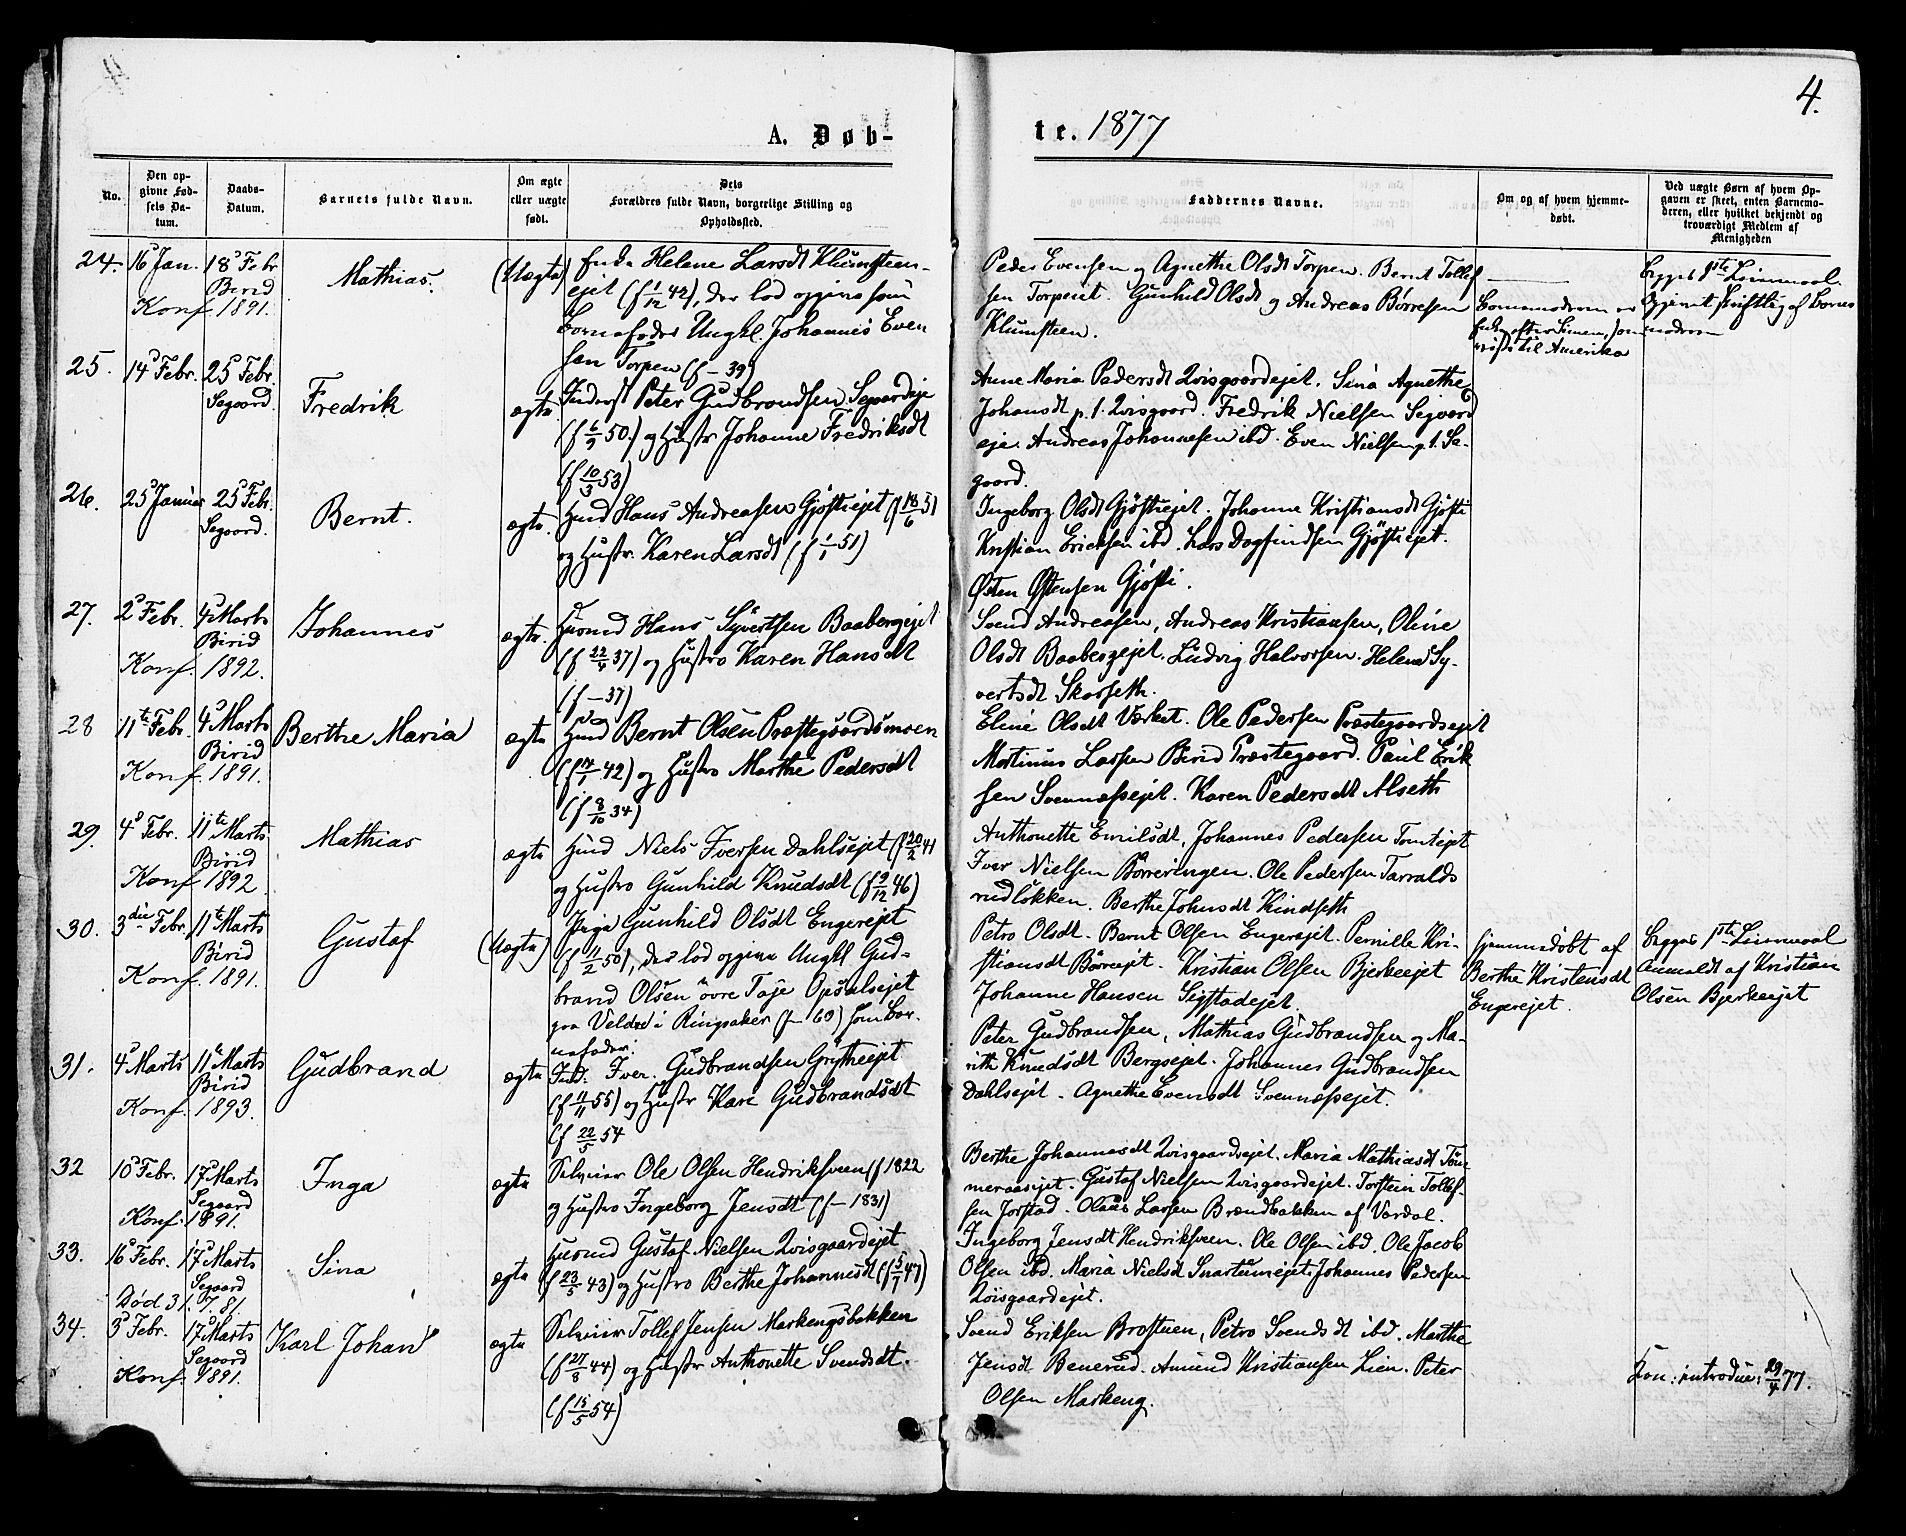 4.
A. Døb-
te. 1877
No.
Den op-
givne Fød-
sels Da-
tum.
Daabs-
Datum.
Barnets fulde Navn.
Om ægte
eller uægte
født.
Dets
Forældres fulde Navn, borgerlige Stilling og
Opholdssted.
Faddernes Navne.
Om og af hvem hjemme-
døbt.
Ved uægte Børn af hvem Op-
gaven er skeet, enten Barnemo-
deren, eller hvilket bekjendt og
troværdigt Medlem af
Menigheden
24. 16 Jan. 18 Febr
Birid
Konf. 1891.
Mathias.
(Uægte)
Enke Helene Larsdt Klumsteen-
ejet (f 1/12 42), der lod opgive som
Barnefader Ungkl. Johannes Even
sen Torpen (f – 39)
Peder Evensen og Agnethe Olsdt Torpen. Bernt Tollef
sen Torpeiet. Gunhild Olsdt og Andreas Børresen
Klumsteen.
Barnemoderen er
til Amerika
Begges 1ste Leiermaal.
Opgivet skriftlig af Barne
moderen
25. 14 Febr. 25 Febr.
Segaard.
Fredrik
ægte
Inderst Peter Gudbrandsen Segaardeje
(f 6/2 50.) og Hustr Johanne Fredriksdt
(f 10/3 53)
Anne Maria Pedersdt Qvisgaardejet. Sina Agnethe
Johansdt p.t. Qvisgaard. Fredrik Nielsen Segaard
eje. Andreas Johannesen ibd. Even Nielsen p.t. Se-
gaard.
26. 25 Januar 25 Feb.
Segaard.
Bernt.
ægte
Hmd Hans Andreasen Gjøstiejet (f 18/6 51
og Hustr. Karen Larsdt (f 1/1 51)
Ingeborg Olsdt Gjøstiejet. Johanne Kristiansdt Gjøsti
Kristian Ericksen ibd. Lars Dagfindsen Gjøstiejet.
Østen Østensen Gjøsti.
27. 2 Febr. 4 Marts
Birid
Konf. 1892.
Johannes
ægte
Husmd Hans Syvertsen Baabergejet
(f 22/8 37) og Hustro Karen Hansdt
(f – 37)
Svend Andreasen, Andreas Kristiansen, Oline
Olsdt Baabergejet. Ludvig Halvorsen. Helene Sy-
vertsdt Skarseth.
28 11te Febr. 4 Marts
Birid
Konf. 1891.
Berthe Maria
ægte
Hmd Bernt Olsen Præstegaardsmoen
(f 17/1 42) og Hustro Marthe Pedersdt
(f 8/10 34)
Eline Olsdt Værket. Ole Pedersen Præstegaardsejet
Martinus Larsen Birid Præstegaard. Paul Erik
sen Svennæsejet. Karen Pedersdt Alseth
29. 4 Febr. 11te Marts
Birid
Konf. 1892
Mathias
ægte
Hmd Niels Iversen Dahlsejet (f 20/2 41
og Hustro Gunhild Knudsdt (f 9/12 46)
Anthonette Emilsdt, Johannes Pedersen Tomtejet
Iver Nielsen Børreringen. Ole Pedersen Tarralds
rudløkken. Berthe Johnsdt Kindseth
30. 3die Febr. 11te Marts
Birid
Konf. 1891.
Gustaf
(Uægte)
Pige Gunhild Olsdt Engerejet
(f 11/2 50), der lod opgive Ungkl Gud-
brand Olsen øvre Taje Opsalsejet
paa Veldre i Ringsaker (f – 60) som Bar-
nefader.
Petro Olsdt. Bernt Olsen Engerejet. Pernille Kri-
stiansdt Børreejet. Kristian Olsen Bjerkeejet
Johanne Hansen Sigstadejet.
Hjemmedøbt af
Berthe Kristensdt
Engerejet.
Begges 1ste Leiermaal
Anmeldt af Kristian
Olsen Bjerkeejet
31. 4 Marts 11te Marts
Birid
Konf. 1893.
Gudbrand
ægte
Ind: Iver Gudbrandsen Grytheejet
(f 4/11 55) og Hustr Kari Gudbrandsdt
(f 22/5 54
Peter Gudbrandsen, Mathias Gudbrandsen og Ma-
rith Knudsdt Bergsejet. Johannes Gudbrandsen
Dahlsejet. Agnethe Evensdt Svennæsejet.
32 10 Febr. 17 Marts
Segaard
Konf. 1891.
Inga
ægte
Selveier Ole Olsen Hendriksveen (f 1822
og Hustro Ingeborg Jensdt (f – 1831)
Berthe Johannesdt Qvisgaardsejet. Maria Mathiasdt Tøm-
meraasejet. Gustaf Nielsen Qvisgaardejet. Torstein Tollef-
sen Jorstad. Olaus Larsen Brændbakken af Vardal.
33. 16 Febr. 17 Marts
Segaard
Død 31.7.81.
Sina
ægte
Husmd Gustaf Nielsen Qvisgaardejet
(f 23/5 43) og Hustro Berthe Johannesdt (f 5/7 47)
Ingeborg Jensdt Hendriksveen. Ole Olsen ibd. Ole Jacob
Olsen ibd. Maria Nielsdt Snartumejet. Johannes Pedersen
Qvisgaardejet.
34. 3 Febr. 17 Marts
Segaard
Konf. 1891.
Karl Johan
ægte
Selveier Tollef Jensen Markengsbakken
(f 27/8 44) og Hustr Anthonette Svendsdt.
(f 15/5 54)
Svend Eriksen Brostuen, Petro Svendsdt ibd. Marthe
Jensdt Benerud. Amund Kristiansen Lien. Peter
Olsen Markeng.
Kon: introdue: 29/4 77.